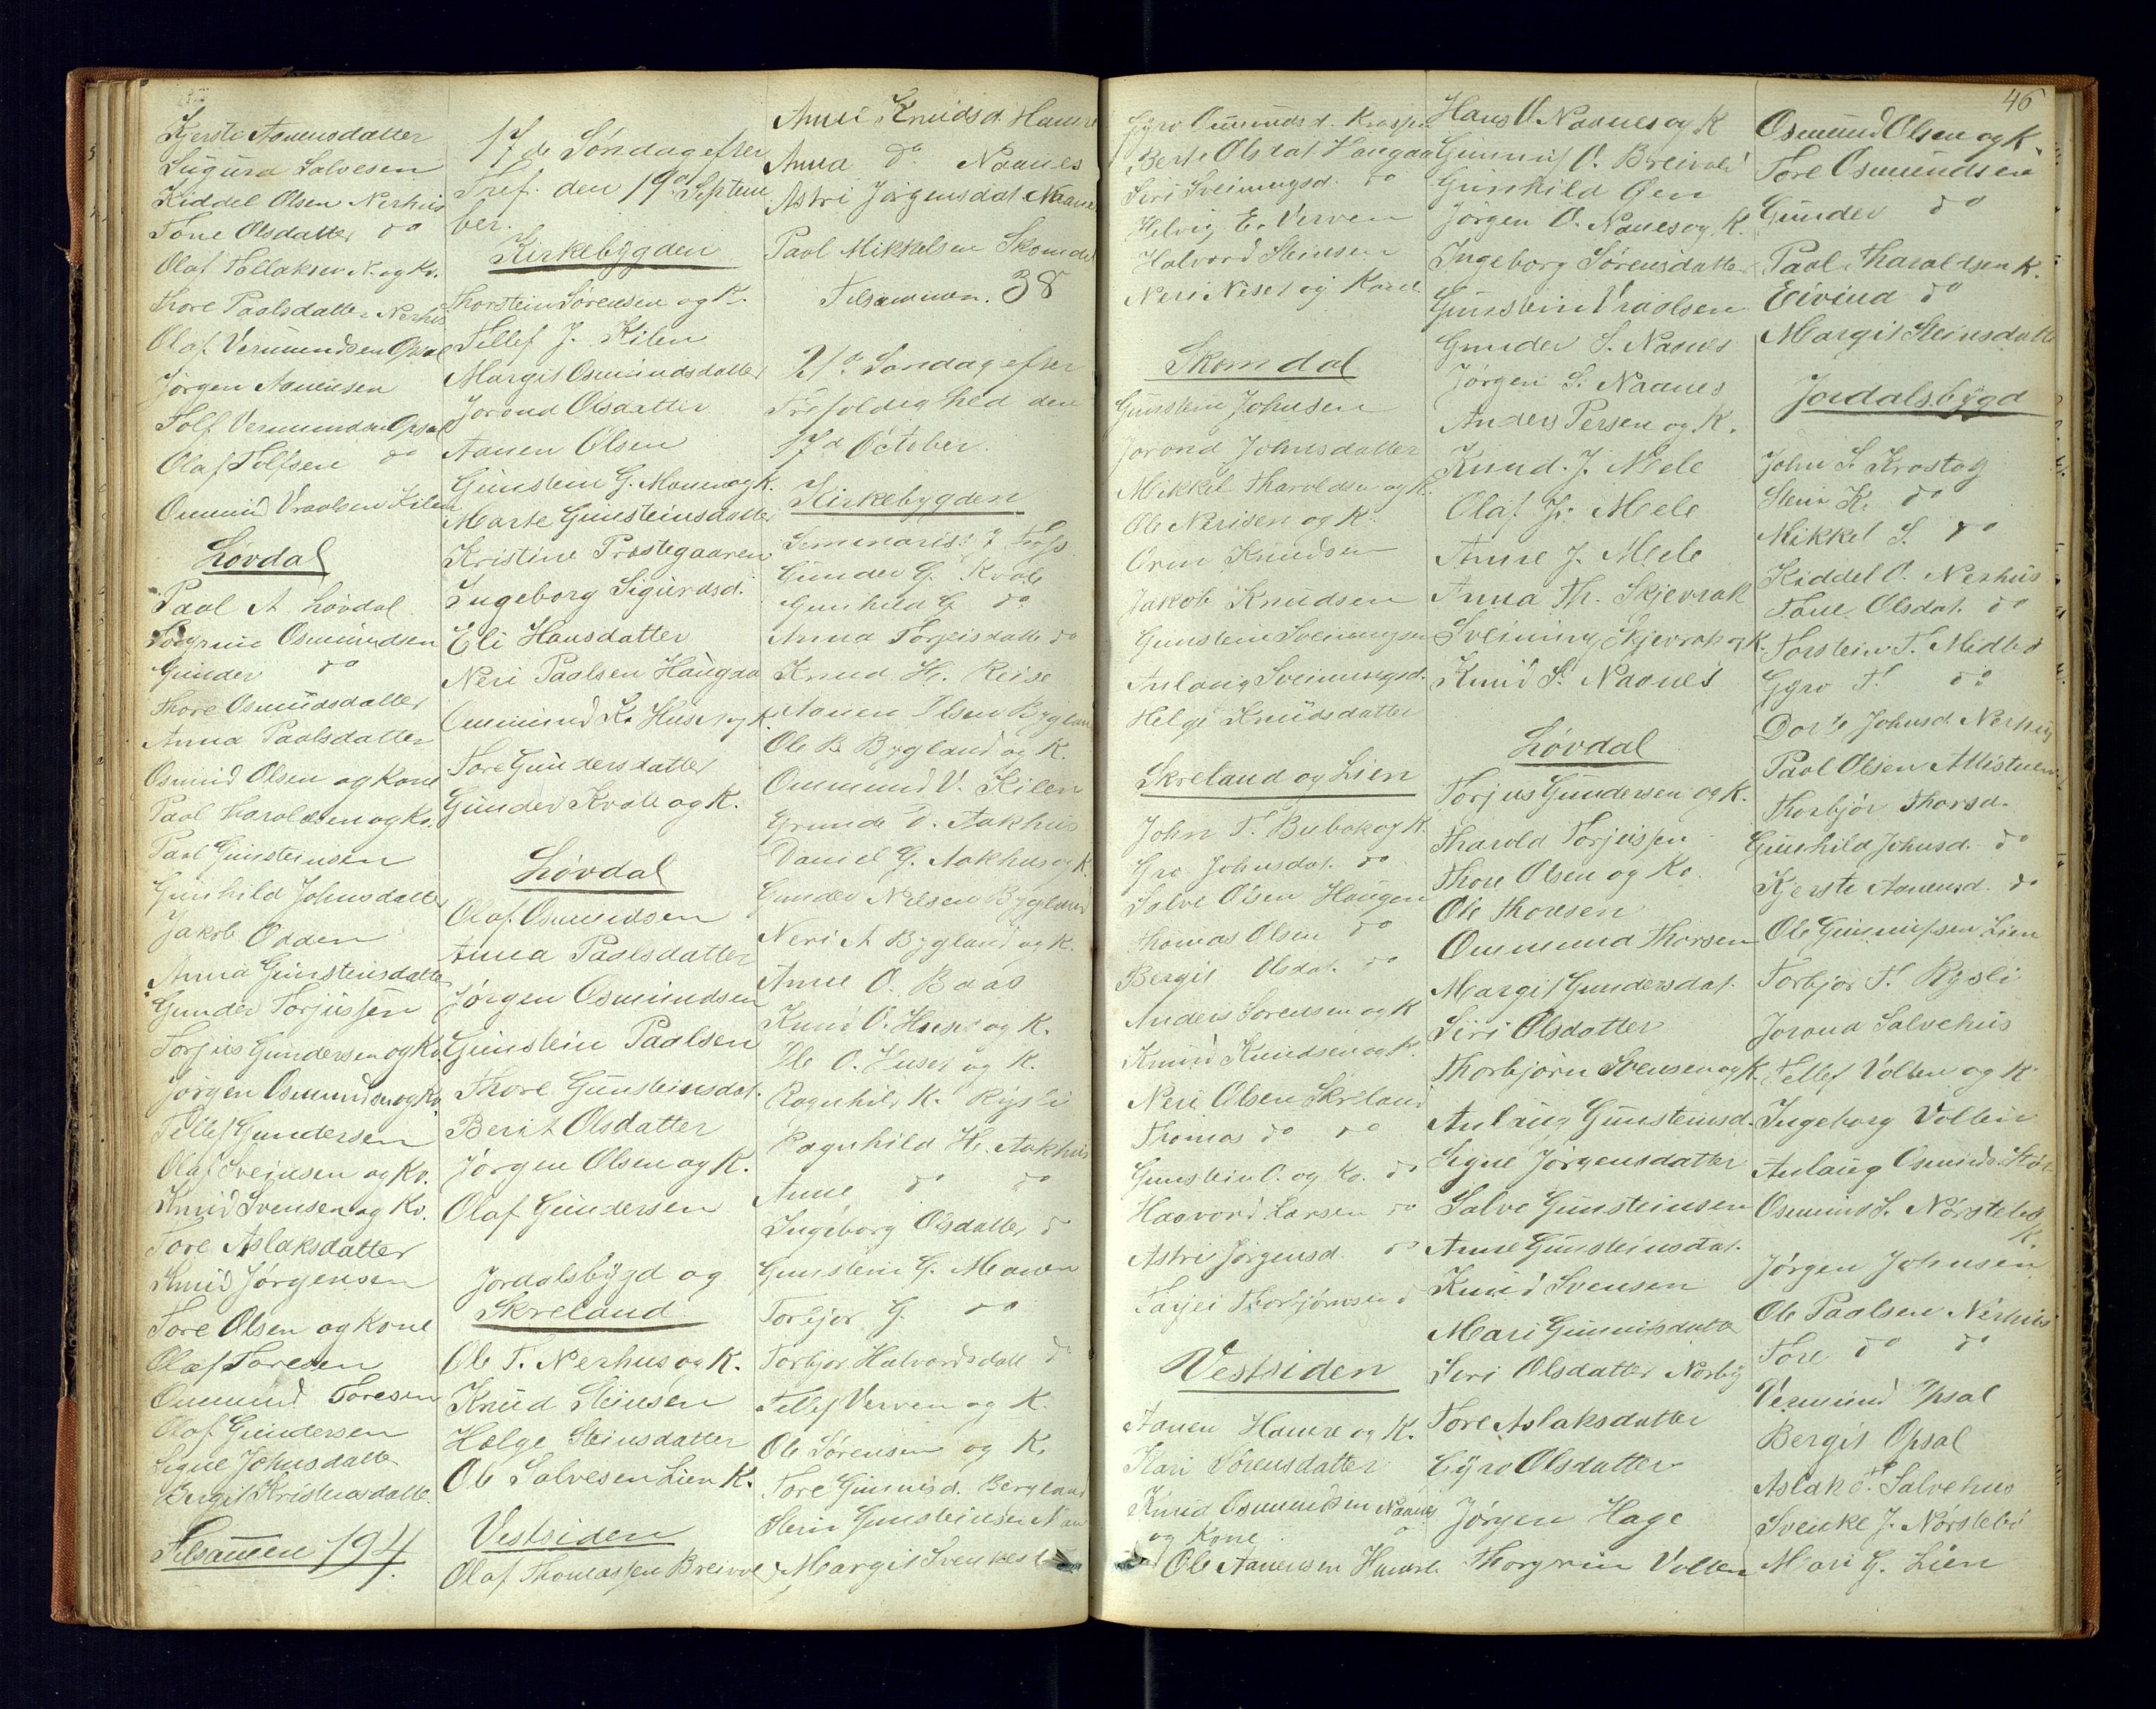 Kjersti Aanensdatter
Sigurd Salvesen
Kiddel Olsen Nerhus
Tone Olsdatter do
Olaf Tollaksen N. og Ko.
Thore Paalsdatter Nerhus
Olaf Vermundsen Opsal
Jørgen Aanensen
Tolf Vermundsen Opsal
Olaf Tolfsen do
Ommund Vraalsen Kilen
Løvdal
Paal A Løvdal
Torgrim Osmundsen
Gunder do
Thore Osmundsdatter
Anna Paalsdatter
Osmund Olsen og Kone
Paal Haroldsen og Ko.
Paal Gunsteinsen
Gunhild Johnsdatter
Jakob Odden
Anna Gunsteinsdatter
Gunder Torjussen
Torjus Gundersen og Ko
Jørgen Osmundsen og Ko
Tellef Gundersen
Olaf Sveinsen og Ko.
Knud Svensen og Ko.
Tore Aslaksdatter
Knud Jørgensen
Tore Olsen og Kone
Olaf Toresen
Ommund Toresen
Olaf Gundersen
Signe Johnsdatte
Bergit Kristensdatte.
Tilsammen 194.
17de Søndag efter
Tref. den 19d Septem
ber.
Kirkebygden
Thorstein Sørensen og K.
Tellef J. Kilen
Margit Osmundsdatter
Jorond Olsdatter
Aanen Olsen
Gunstein G. Moen og K.
Marte Gunsteinsdatter
Kristine Prestegaaren
Ingeborg Sigurdsd.
Eli Hansdatter
Neri Paalsen Haugaa
Ommund K. Huset og K.
Tore Gundersdatter
Gunder Kvale og K.
Løvdal
Olaf Osmundsen
Anna Paalsdatter
Jørgen Osmundsen
Gunstein Paalsen
Thore Gunsteinsdat.
Berit Olsdatter
Jørgen Olsen og K.
Olaf Gundersen
Jordalsbygd og
Skreland
Ole T. Nerhus og K.
Knud Steinsen
Helge Steinsdatter
Ole Salvesen Lien K.
Vestsiden
Olaf Thomassen Breivol
Anne Knudsd. Hamre
Anna do Naanes
Astri Jørgensdat. Naanes
Paal Mikkelsen Skomdal
Tilsammen. 38
21de Søndag efter
Trefoldighed den
17d October.
Kirkebygden
Seminarist J Foss
Gunder G. Kvale
Gunhild G. do
Anna Torgeisdatte do
Knud H. Reise
Aanen Olsen Bygland
Ole B Bygland og K.
Ommund V. Kilen
Grunde D. Aakhus
Daniel G. Aakhus og K
Gunder Nilsen Bygland
Neri A Bygland og K.
Anne O. Baas
Knud O. Huset og K.
Ole O. Huset og K.
Ragnhild K. Rysli
Ragnhild H. Aakhus
Anne do do
Ingeborg Olsdatter do
Gunstein G. Moen
Torbjor G. do
Torbjor Halvordsdatt do
Tellef Verven og K.
Ole Sørensen og K.
Tore Gunnufsd. Bergland
Stein Gunsteinsen Naa
Margit Svenkesd
46
Gyro Ommundsd. Kraspe
Berte Olsdat Haugaa
Siri Sveinungsd. do
Helvig E. Verven
Halvord Steinsen
Neri Neset og Kone
Skomdal
Gunstein Johnsen
Jorond Johnsdatter
Mikkel Tharoldsen og K.
Ole Nerisen og K.
Orm Knudsen
Jakob Knudsen
Gunstein Sveinungsen
Anlaug Sveinungsd.
Helge Knudsdatter
Skreland og Lien
John T. Bubak og K.
Gro Johnsdat. do
Salve Olsen Haugen
Thomas Olsen do
Bergit Olsdat. do
Anders Sørensen og K
Knud Knudsen og K.
Neri Olsen Skreland
Thomas do do
Gunstein O. og Ko. do
Haavord Larsen do
Astri Jørgensd. do
Tarjei Thorbjørnsen d
Vestsiden
Aanen Hamre og K.
Kari Sørensdatter
Knud Osmundsen Naanes
og Kone
Ole Aanensen Hamre
Hans O. Naanes og K
Gunnuf O. Breivold
Gunhild Øen
Jørgen O. Naanes og K.
Ingeborg Sørensdatter
Gunstein Vraalsen
Gunder S. Naanes
Jørgen S. Naanes
Anders Persen og K.
Knud J. Mele
Olaf J. Mele
Anne J. Mele
Anna Th. Skjevrak
Sveinung Skjevrak og K.
Knud S. Naanes
Løvdal
Torjus Gundersen og K.
Tharold Torjussen
Thore Olsen og Ko.
Ole Thoresen
Ommund Thorsen
Margit Gundersdat.
Siri Olsdatter
Thorbjørn Svensen og K.
Anlaug Gunsteinsd.
Signe Jørgensdatter
Salve Gunsteinsen
Anne Gunsteinsdat.
Knud Svensen
Mari Gunnufsdatte
Siri Olsdatter Norby
Tore Aslaksdatter
Gyro Olsdatter
Jørgen Hage
Thorgrim Vollen
Osmund Olsen og K.
Tore Osmundsen
Gunder do
Paal Tharaldsen K.
Eivind do
Margit Steinsdatte
Jordalsbygd
John S. Krostøg
Stein K. do
Mikkel S. do
Kiddel O. Nerhus
Tone Olsdat. do
Torstein T. Midtbø
Gyro T. do
Dorte Johnsd. Nerhus
Paal Olsen Attistuen
Thorbjør Thorsd.
Gunhild Johnsd. do
Kjersti Aanensd. do
Ole Gunnufsen Lien
Torbjør T. Rysli
Jorond Salvehus
Tellef Vollen og K
Ingeborg Vollen
Anlaug Osmunds. Støl
Osmund S. Nørstebø
K.
Jørgen Johnsen
Ole Paalsen Nerhus
Tore do do
Vermund Opsal
Bergit Opsal
Aslak O. Salvehus
Svenke J. Nørstebø
Mari G. Lien